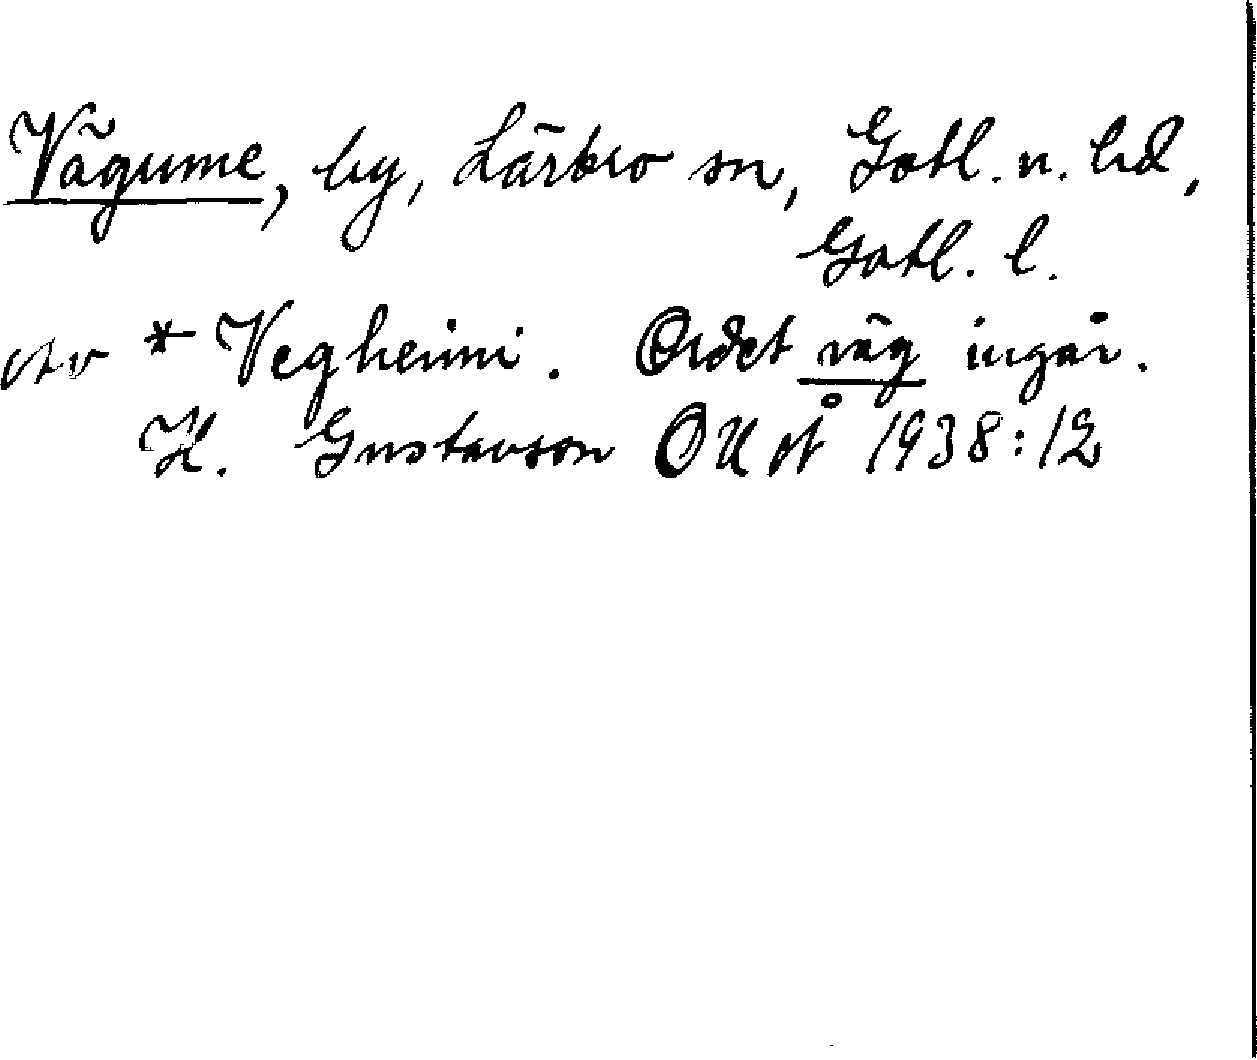 Vägume, by, Lärbro sn, Gotl. n. hd,
Gotl. l.
av *Vegheimi. Ordet väg ingår.
H. Gustavson OUÅ 1938:12